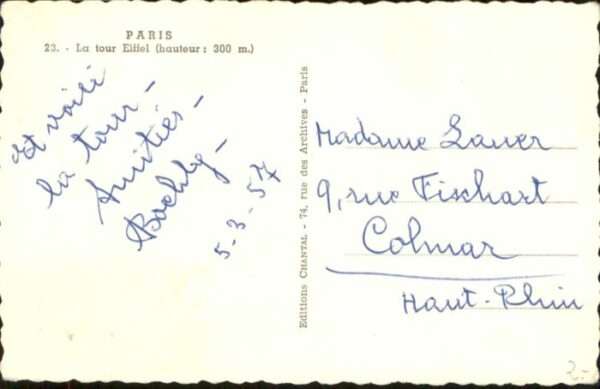 PARIS
23. - La tour Eiffel (hauteur : 300 m.)
Et voici
la tour -
Amitiés -
5-3-57
Editions CHANTAL - 74, rue des Archives - Paris
Madame Lauer
9, rue Fischart
Colmar
Haut-Rhin
2-